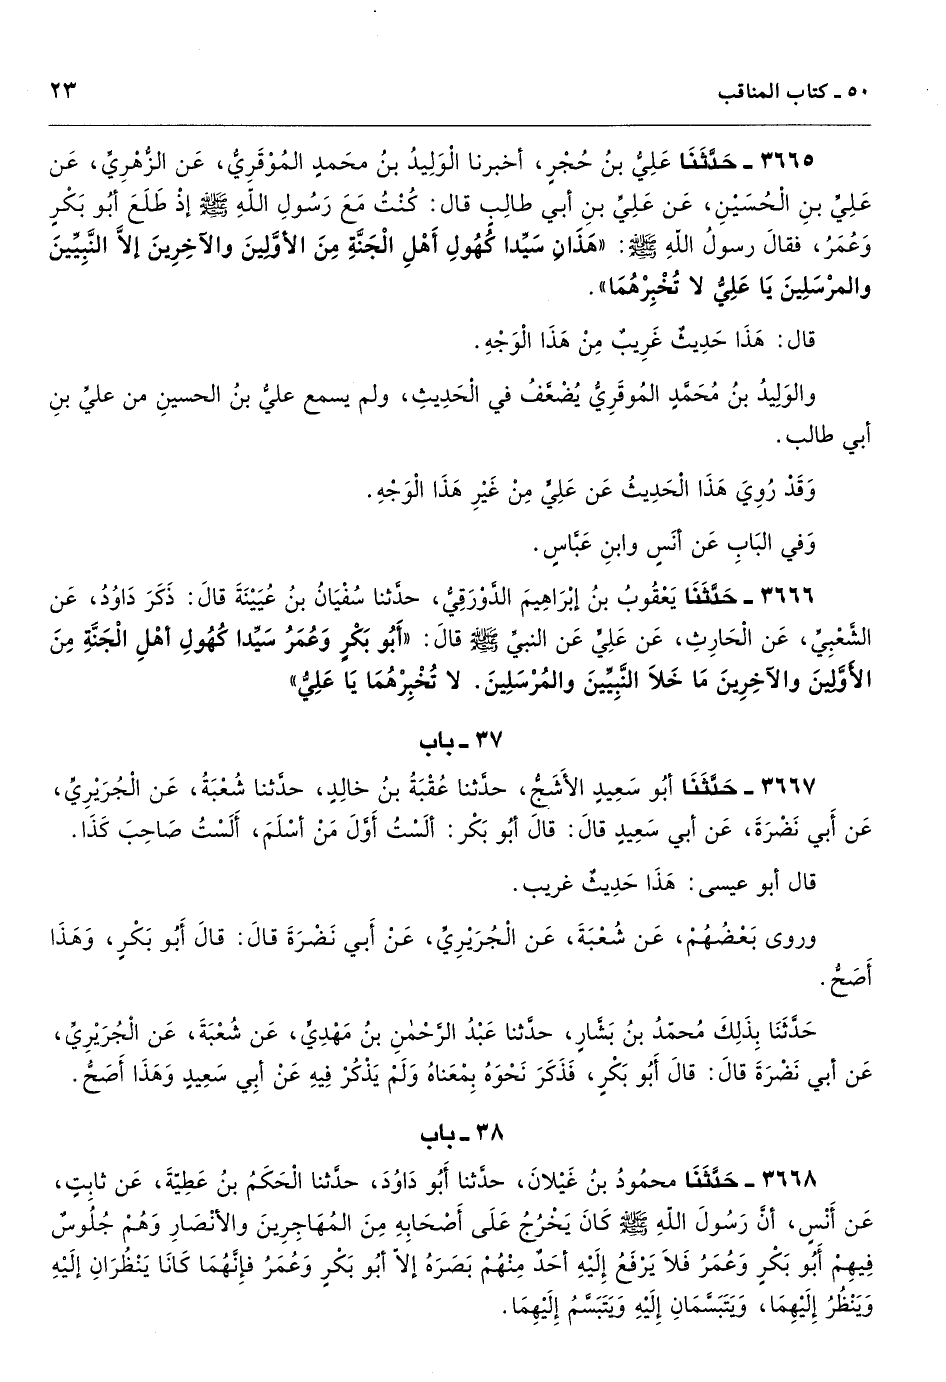 ٥٠ ـ كتاب المناقب ٢٣
٣٦٦٥ ـ حَدَّثَنَا عَلِيُّ بنُ حُجْرٍ، أخبرنا الْوَلِيدُ بنُ محمدٍ المُوْقَرِيُّ، عَن الزُّهْرِيِّ، عَن
عَلِيِّ بنِ الْحُسَيْنِ، عَن عَلِيِّ بنِ أبي طالِبٍ قال: كُنْتُ مَعَ رَسُولِ اللّهِ ﷺ إذْ طَلَعَ أَبُو بَكْرٍ
وَعُمَرُ، فقالَ رسولُ اللّهِ ﷺ: «هَذَانِ سَيِّدا كُهُولِ أهْلِ الْجَنَّةِ مِنَ الأوَّلِينَ والآخِرِينَ إلاَّ النَّبِيِّينَ
والمرْسَلِينَ يَا عَلِيُّ لا تُخْبِرْهُمَا».
قال: هَذَا حَدِيثٌ غَرِيبٌ مِنْ هَذَا الْوَجْهِ.
والوَلِيدُ بنُ مُحَمَّدٍ المُوقَرِيُّ يُضْعَّفُ في الْحَدِيثِ، ولم يسمع عليُّ بنُ الحسينِ من عليِّ بنِ
أبي طالب.
وَقَدْ رُوِيَ هَذَا الْحَدِيثُ عَن عَلِيٍّ مِنْ غَيْرِ هَذَا الْوَجْهِ.
وَفي البَابِ عَن أنَسٍ وابنِ عَبَّاسٍ.
٣٦٦٦ ـ حَدَّثَنَا يَعْقُوبُ بنُ إبْرَاهِيمَ الدَّوْرَقِيُّ، حدَّثنا سُفْيَانُ بنُ عُيَيْنَةَ قالَ: ذَكَرَ دَاوُدُ، عَن
الشَّعْبِيِّ، عَن الْحَارِثِ، عَن عَلِيٍّ عَن النبيِّ ﷺ قالَ: «أَبُو بَكْرٍ وَعُمَرُ سَيِّدا كُهُولِ أهْلِ الْجَنَّةِ مِنَ
الأَوَّلِينَ والآخِرِينَ مَا خَلاَ النَّبِيِّينَ والمُرْسَلِينَ. لا تُخْبِرْهُمَا يَا عَلِيُّ»
٣٧ ـ باب
٣٦٦٧ ـ حَدَّثَنَا أبُو سَعِيدٍ الأَشَجُّ، حدَّثنا عُقْبَةُ بنُ خالِدٍ، حدَّثنا شُعْبَةُ، عَن الْجُرَيْرِيِّ،
عَن أَبي نَضْرَةَ، عَن أبي سَعِيدٍ قالَ: قالَ أَبُو بَكْر: ألَسْتُ أوَّلَ مَنْ أسْلَمَ، ألَسْتُ صَاحِبَ كَذَا.
قال أبو عيسى: هَذَا حَدِيثٌ غريب.
وروى بَعْضُهُمْ، عَن شُعْبَةَ، عَن الْجُرَيْرِيِّ، عَنْ أبي نَضْرَةَ قالَ: قالَ أَبُو بَكْرٍ، وَهَذَا
أَصَحُّ.
حَدَّثَنَا بِذَلِكَ مُحمّدُ بنُ بَشَّارٍ، حدَّثنا عَبْدُ الرَّحْمٰنِ بنُ مَهْدِيٍّ، عَن شُعْبَةَ، عَن الْجُرَيْرِيِّ،
عَن أبي نَضْرَةَ قالَ: قالَ أَبُو بَكْرٍ، فَذَكَرَ نَحْوَهُ بِمْعَناهُ وَلَمْ يَذْكُرْ فِيهِ عَنْ أبي سَعِيدٍ وَهَذَا أَصَحُّ.
٣٨ ـ باب
٣٦٦٨ ـ حَدَّثَنَا محمُودُ بنُ غَيْلانَ، حدَّثنا أَبُو دَاوُدَ، حدَّثنا الْحَكَمُ بنُ عَطِيّةَ، عَن ثابِتٍ،
عَن أنْسٍ، أنَّ رَسُولَ اللّهِ ﷺ كَانَ يَخْرُجُ عَلَى أَصْحَابِهِ مِنَ المُهَاجِرِينَ والأنْصَارِ وَهُمْ جُلُوسٌ
فِيهِمْ أَبُو بَكْرٍ وَعُمَرُ فَلاَ يَرْفَعُ إلَيْهِ أحَدٌ مِنْهُمْ بَصَرَهُ إلاّ أبُو بَكْرٍ وَعُمَرُ فإِنَّهُمَا كَانَا يَنْظُرَانِ إلَيْهِ
وَيَنْظُرُ إلَيْهِمَا، وَيَتَبَسَّمَانِ إلَيْهِ وَيَتَبَسَّمُ إلَيْهِمَا.